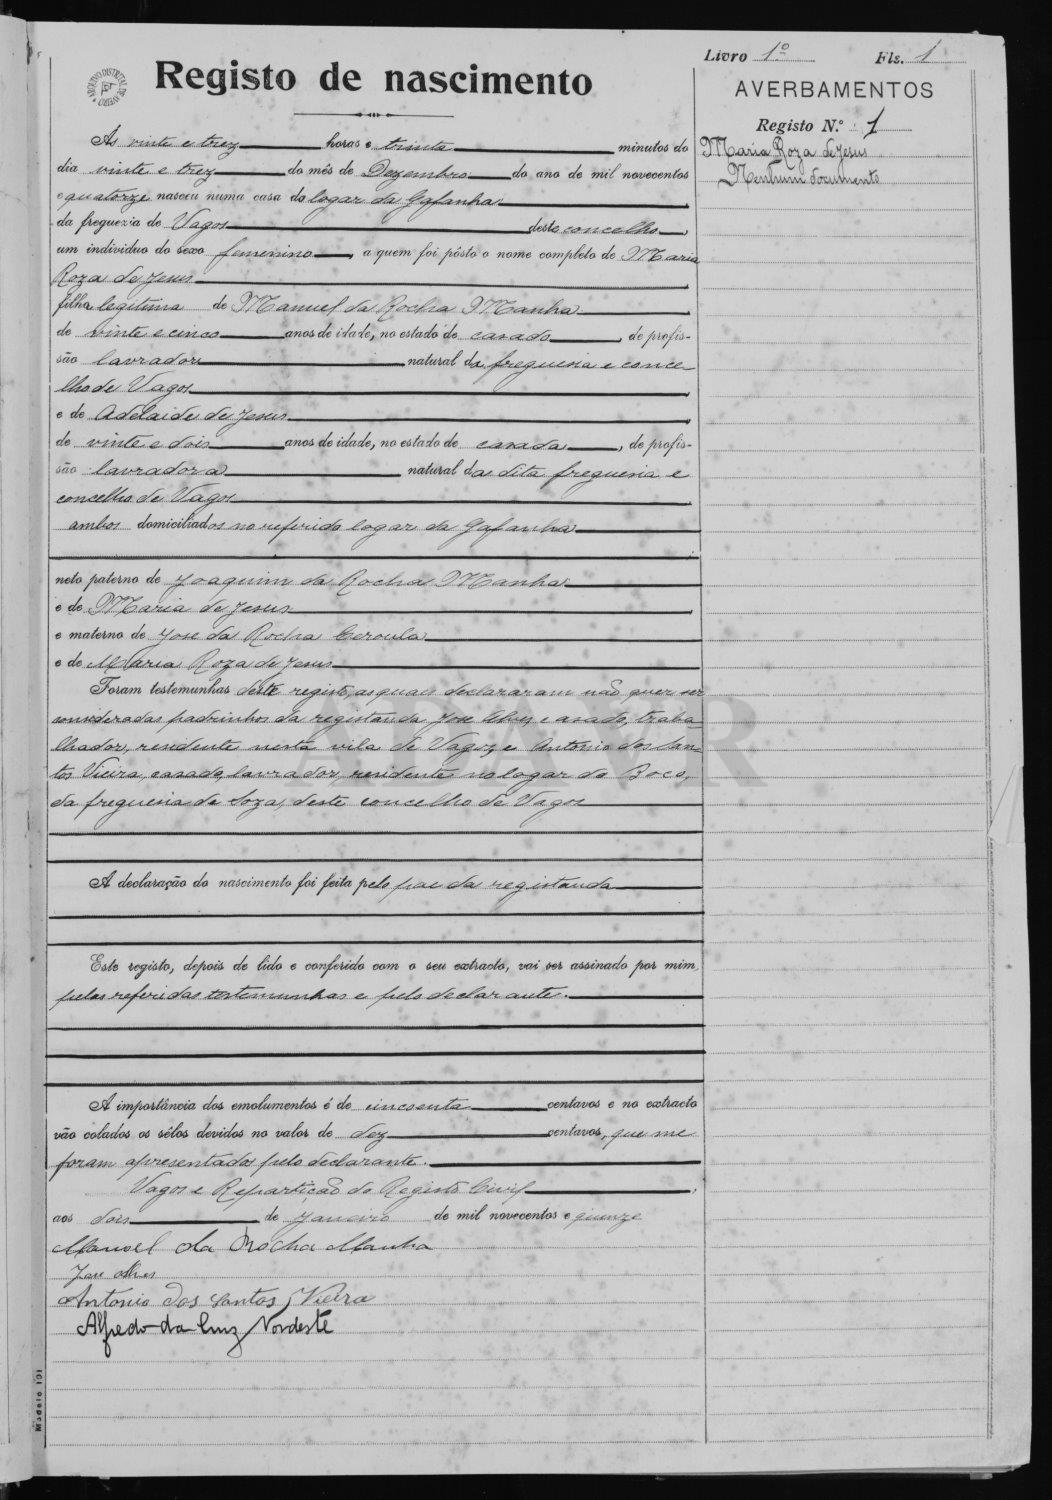 Livro 1º Fls. 1
ARQUIVO DISTRITAL DE AVEIRO
Registo de nascimento
AVERBAMENTOS
Registo N.º 1
Maria Roza de Jesus
Nenhum documento
Ás vinte e trez horas e trinta minutos do
dia vinte e trez do mês de Dezembro do ano de mil novecentos
e quatorze nasceu numa casa do logar da Gafanha
da freguezia de Vagos deste concelho,
um individuo do sexo femenino, a quem foi pôsto o nome completo de Maria
Roza de Jesus
filha legitima de Manuel da Rocha Manha
de vinte e cinco anos de idade, no estado de casado, de profis-
são lavrador natural da freguesia e conce-
lho de Vagos
e de Adelaide de Jesus
de vinte e dois anos de idade, no estado de casada, de profis-
são lavradora natural da dita freguesia e
concelho de Vagos
ambos domiciliados no referido logar da Gafanha
neto paterno de Joaquim da Rocha Manha
e de Maria de Jesus
e materno de Jose da Rocha Ceroula
e de Maria Roza de Jesus
Foram testemunhas deste registo, as quais declararam não quer ser
consideradas padrinhos da registanda Jose Alves casado, traba-
lhador, residente nesta vila de Vagos, e Antonio dos San-
tos Vieira, casado, lavrador, residente no logar do Boco,
da freguesia de Soza, deste concelho de Vagos
ADAVR
A declaração do nascimento foi feita pelo pae da registanda
Este registo, depois de lido e conferido com o seu extracto, vai ser assinado por mim,
pelas referidas testemunhas e pelo declarante.
A importância dos emolumentos é de cincoenta centavos e no extracto
vão colados os sêlos devidos no valor de dez centavos, que me
foram apresentados pelo declarante.
Vagos e Repartição do Registo Civil,
aos dois de Janeiro de mil novecentos e quinze
Manoel da Rocha Manha
Jose Alves
Antonio dos Santos Vieira
Alfredo da Cruz Nordeste
Modelo 101